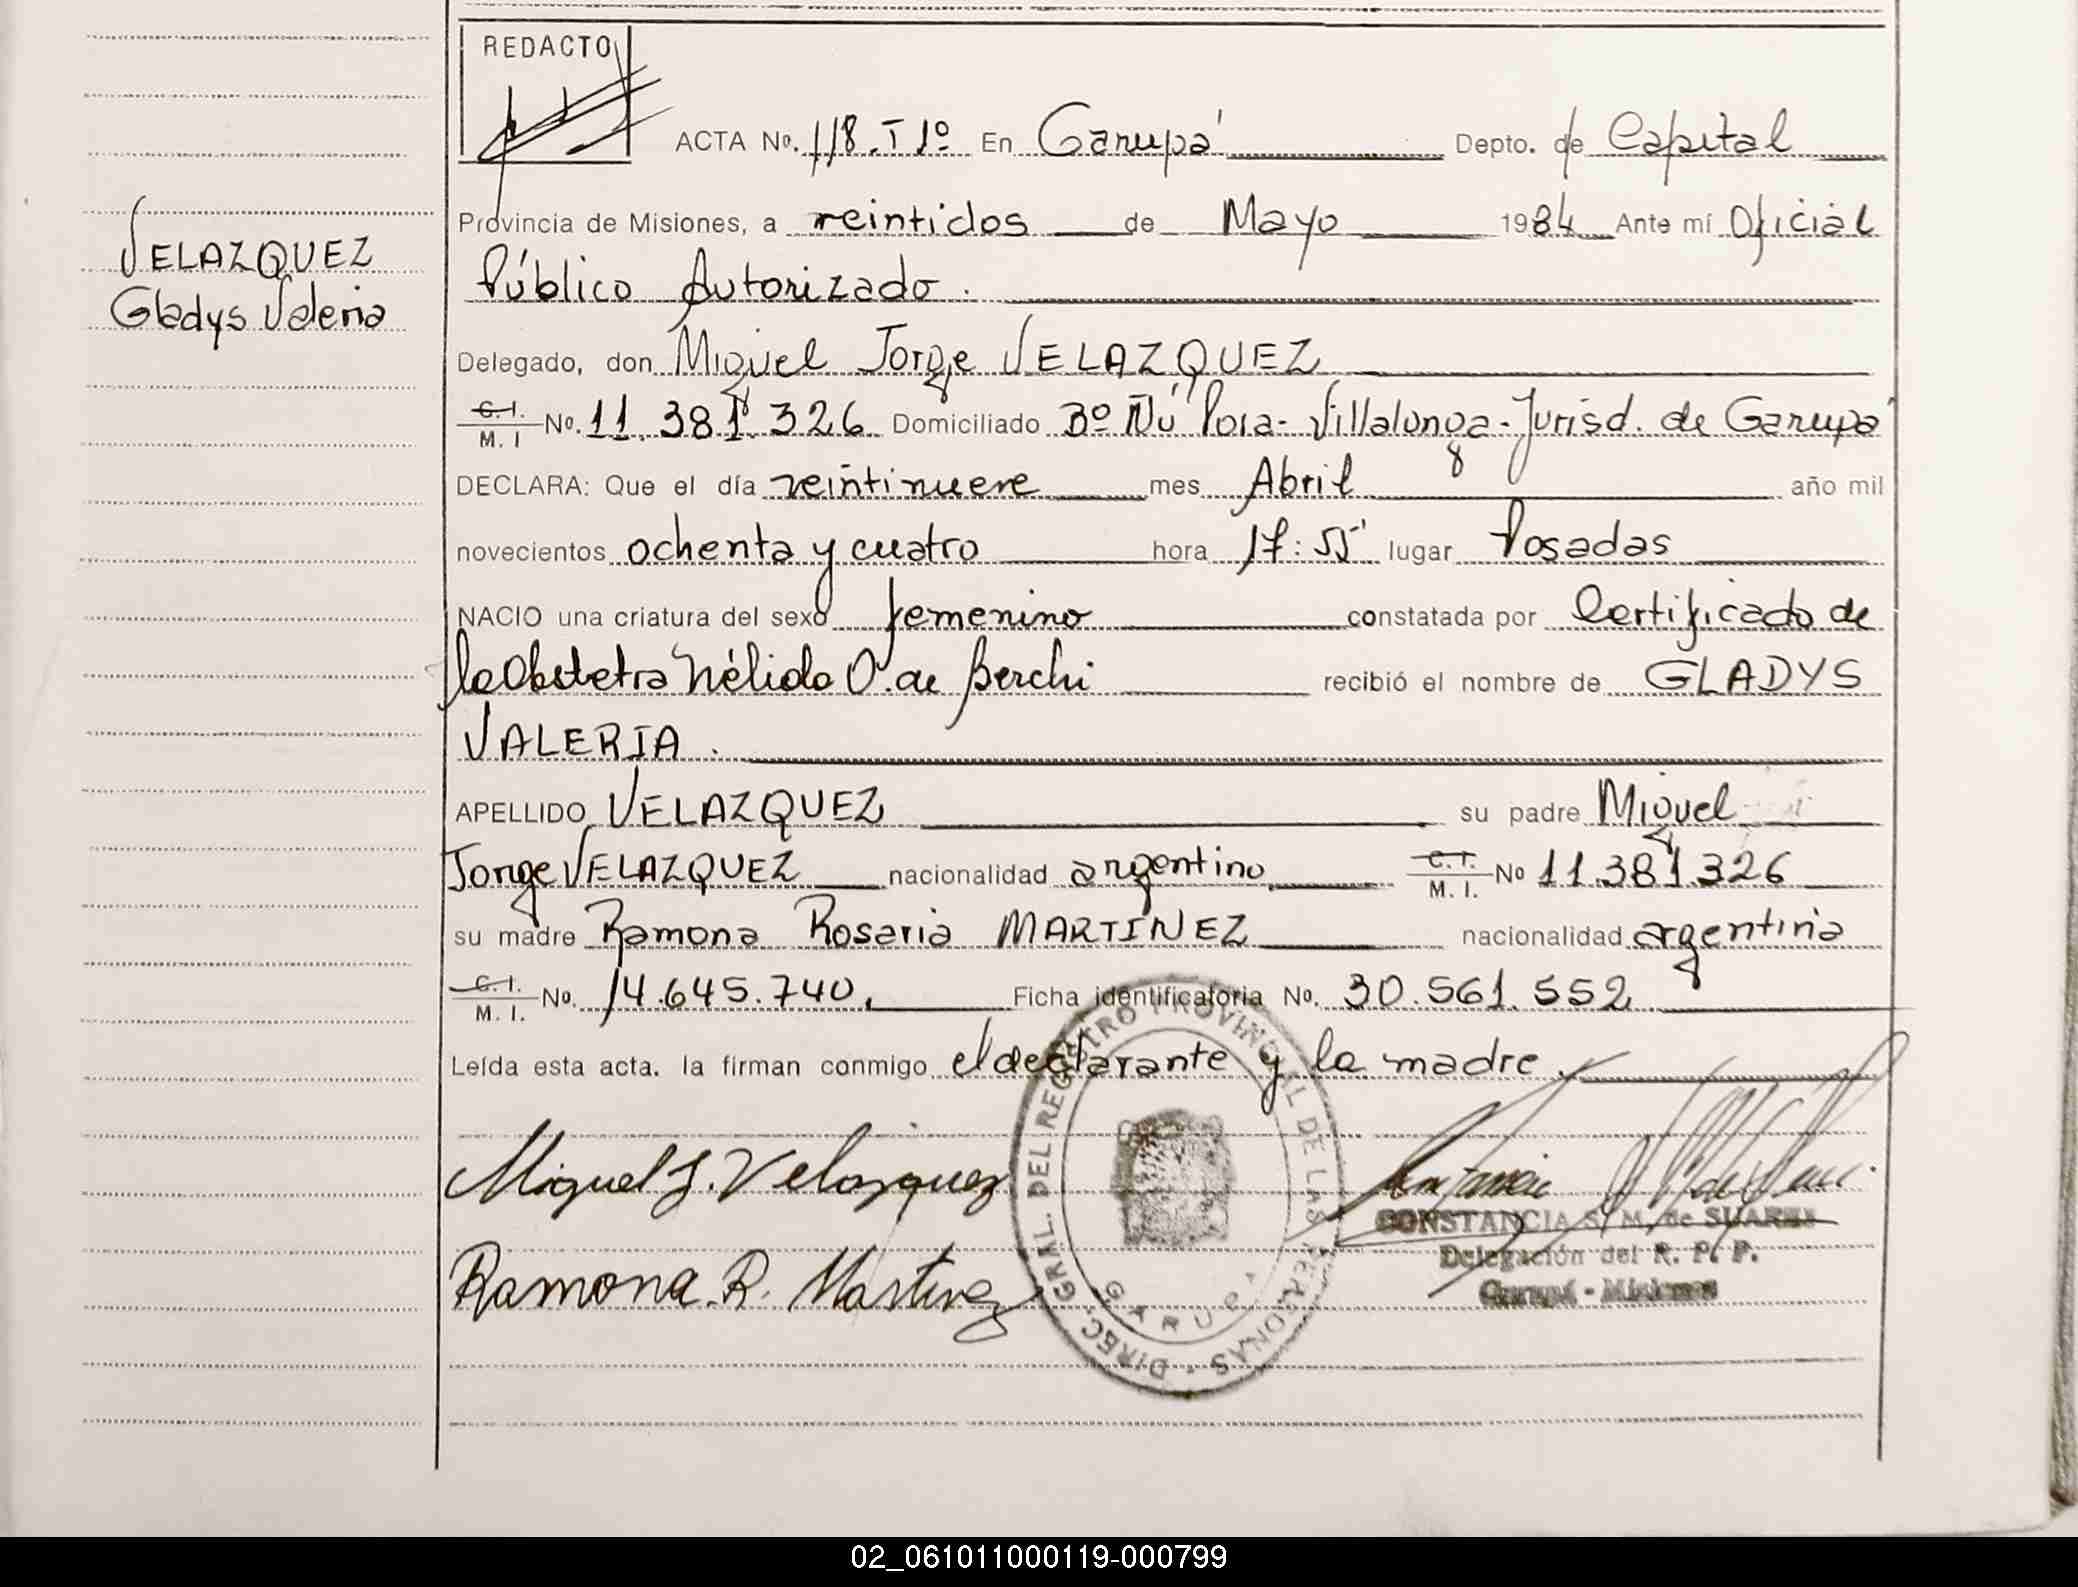 REDACTO
ACTA No. 118. T 1º En Garupá Depto. de Capital
VELAZQUEZ
Gladys Valeria
Provincia de Misiones, a veintidos de Mayo 1984 Ante mí Oficial
Público Autorizado.
Delegado, don Miguel Jorge VELAZQUEZ
C. I.
M. I No. 11.381.326 Domiciliado Bº Ñú Porá - Villalonga - Jurisd. de Garupá
DECLARA: Que el día veintinueve mes Abril año mil
novecientos ochenta y cuatro hora 17:55' lugar Posadas
NACIO una criatura del sexo femenino constatada por Certificado de
la Obstetra Nélida O. de Berchi recibió el nombre de GLADYS
VALERIA.
APELLIDO VELAZQUEZ su padre Miguel
Jorge VELAZQUEZ nacionalidad argentino C. I.
M. I. No 11.381.326
su madre Ramona Rosaria MARTINEZ nacionalidad argentina
C. I.
M. I. No. 14.645.740. Ficha identificatoria No. 30.561.552
Leída esta acta. la firman conmigo el declarante y la madre.
Miguel J. Velazquez
Ramona R. Martinez
DIREC. GRAL. DEL REGISTRO PROVINCIAL DE LAS PERSONAS
GARUPA
CONSTANCIA S. M. de SUAREZ
Delegación del R. P. P.
Garupá - Misiones
02_061011000119-000799